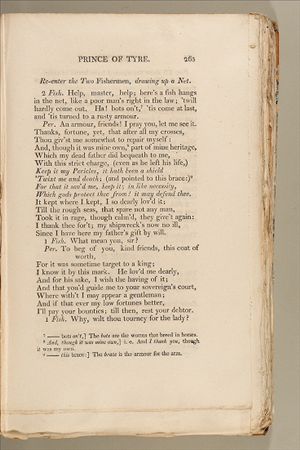 PRINCE OF TYRE. 263
Re-enter the Two Fishermen, drawing up a Net.
2 Fish. Help, master, help; here's a fish hangs
in the net, like a poor man's right in the law; 'twill
hardly come out. Ha! bots on't,⁷ 'tis come at last,
and 'tis turned to a rusty armour.
Per. An armour, friends! I pray you, let me see it.
Thanks, fortune, yet, that after all my crosses,
Thou giv'st me somewhat to repair myself:
And, though it was mine own,⁸ part of mine heritage,
Which my dead father did bequeath to me,
With this strict charge, (even as he left his life,)
Keep it my Pericles, it hath been a shield
'Twixt me and death; (and pointed to this brace:)⁹
For that it sav'd me, keep it; in like necessity,
Which gods protect thee from! it may defend thee.
It kept where I kept, I so dearly lov'd it;
Till the rough seas, that spare not any man,
Took it in rage, though calm'd, they give't again:
I thank thee for't; my shipwreck's now no ill,
Since I have here my father's gift by will.
1 Fish. What mean you, sir?
Per. To beg of you, kind friends, this coat of
worth,
For it was sometime target to a king;
I know it by this mark. He lov'd me dearly,
And for his sake, I wish the having of it;
And that you'd guide me to your sovereign's court,
Where with't I may appear a gentleman;
And if that ever my low fortunes better,
I'll pay your bounties; till then, rest your debtor.
1 Fish. Why, wilt thou tourney for the lady?
⁷ —— bots on't,] The bots are the worms that breed in horses.
⁸ And, though it was mine own,] i. e. And I thank you, though
it was my own.
⁹ —— this brace:] The brace is the armour for the arm.